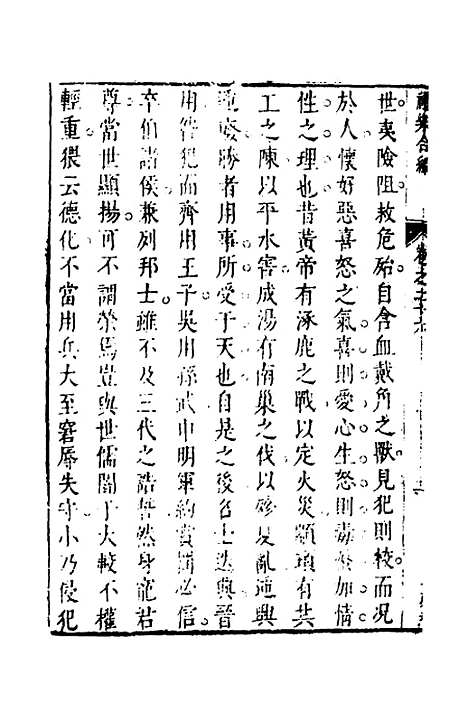 禮樂合編
卷之二十六
世夷險阻救危殆自含血戴角之獸見犯則較而况
於人懷好惡喜怒之氣喜則愛心生怒則毒螫加情
性之理也昔黃帝有涿鹿之戰以定火災顓頊有共
工之陳以平水害成湯有南巢之伐以殄夏亂逓興
逓廢勝者用事所受于天也自是之後名士迭興晉
用咎犯而齊用王子吳用孫武申明軍約賞罰必信
卒伯諸侯兼列邦士雖不及三代之誥誓然身寵君
尊當世顯揚可不謂榮焉豈與世儒闇于大較不權
輕重猥云德化不當用兵大至窘辱失守小乃侵犯